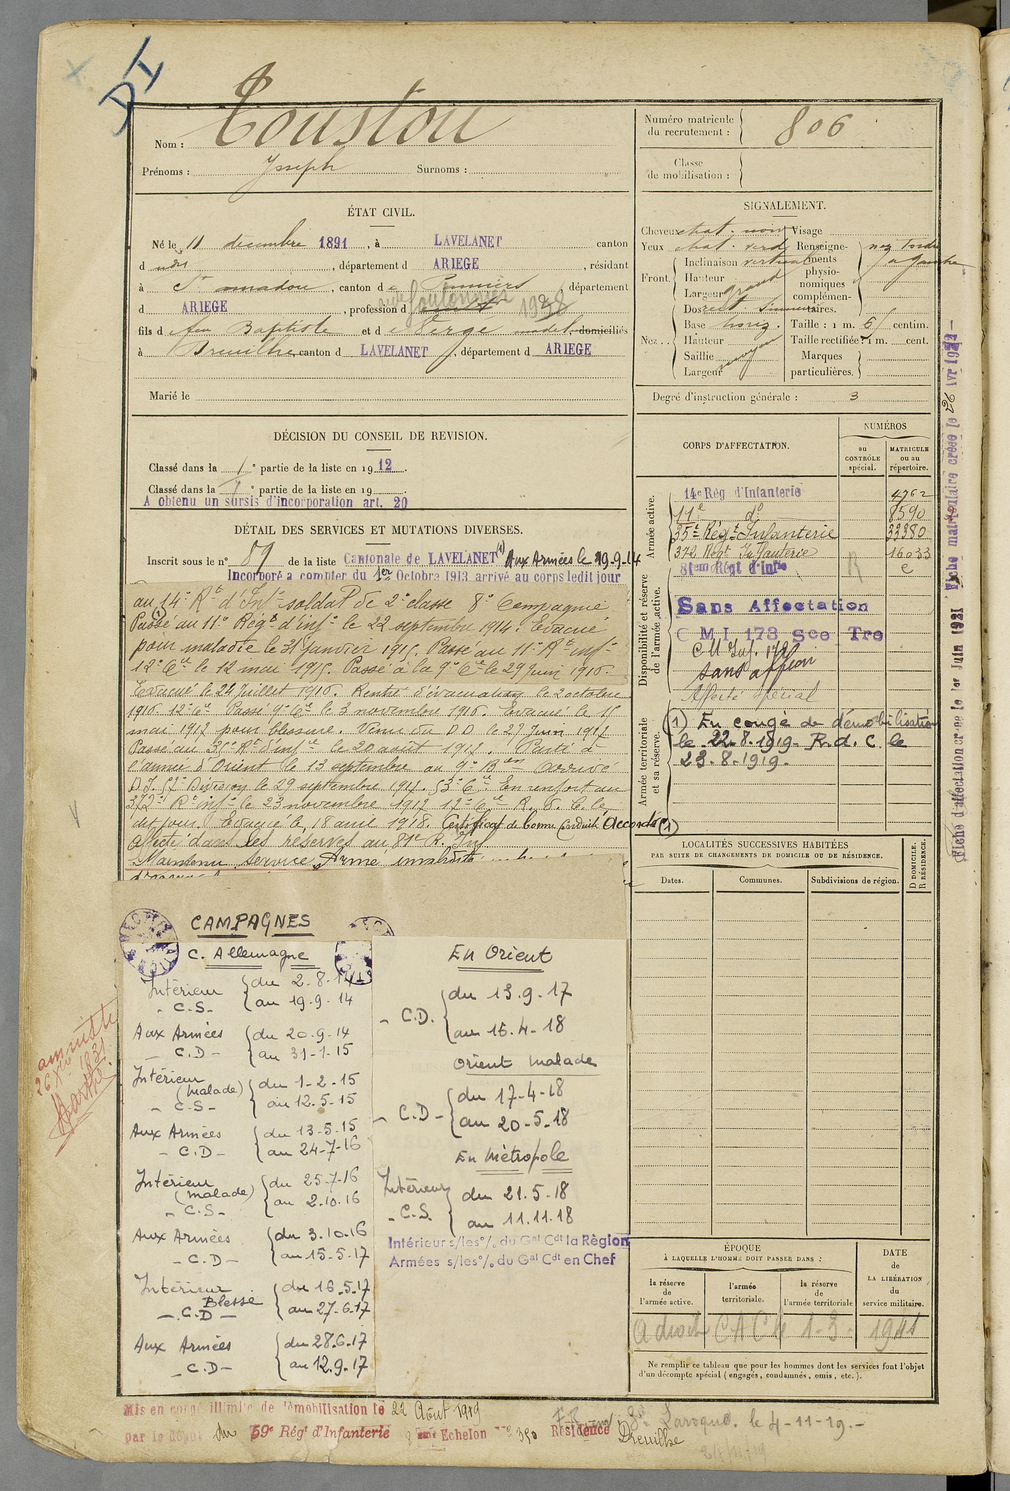 DI
Nom : Touston
Prénoms : Joseph Surnoms :
Numéro matricule du recrutement : 806
Classe de mobilisation :
ÉTAT CIVIL.
Né le 11 décembre 1891, à LAVELANET canton
d udit, département d ARIEGE, résidant
à St amadou, canton de Pamiers département
d ARIEGE, profession d
fils d feu Baptiste et de Serge domiciliés
à Dreuilhe canton d LAVELANET, département d ARIEGE
Marié le
SIGNALEMENT.
Cheveux chat. noir Visage
Yeux chat. verd Renseigne-
ments physio-
nomiques complémen-
taires. nez tordu à gauche
Front. Inclinaison vertical
Hauteur
Largeur grand
Dos rect. Sinuosit
Nez. Base horiz.
Hauteur
Saillie
Largeur moyen
Taille : 1 m. 61 centim.
Taille rectifiée : 1 m. cent.
Marques particulières.
Degré d'instruction générale : 3
DÉCISION DU CONSEIL DE REVISION.
Classé dans la 1e partie de la liste en 1912.
Classé dans la 1e partie de la liste en 19
A obtenu un sursis d'incorporation art. 20
DÉTAIL DES SERVICES ET MUTATIONS DIVERSES.
Inscrit sous le n° 87 de la liste Cantonale de LAVELANET (1) Aux Armées le 19-9-14
Incorporé à compter du 1er Octobre 1913 arrivé au corps le dit jour
au 14e Rt d'Infie soldat de 2e classe 8e Compagnie
Passé au 11e Régt d'infie le 22 septembre 1914. Evacué
pour maladie le 31 janvier 1915. Passé au 11e Rt infie
12e Cie le 12 mai 1915. Passé à la 9e Cie le 29 juin 1916.
Evacué le 24 juillet 1916. Rentré d'évacuation le 2 octobre
1916. 12e Cie Passé 9e Cie le 3 novembre 1916. Evacué le 15
mai 1917 pour blessure. Venu du DD le 27 juin 1917
Passé au 35e Rt d'infie le 20 août 1917. Parti à
l'armée d'Orient le 13 septembre au 9e Bon arrivé
D.I. 57e Division le 29 septembre 1917. 53e Cie En renfort au
372e Rt infie le 23 novembre 1917 12e Cie R. d. C. le
dit jour. Evacué le 18 avril 1918. Certificat de bonne conduite Accordé (1)
Affecté dans les réserves au 81e R. Inf
Maintenu service Armé
CORPS D'AFFECTATION.
NUMÉROS
au CONTRÔLE spécial.
MATRICULE ou au répertoire.
Armée active.
14e Rég d'Infanterie 4762
11e do 8590
35e Régt Infanterie 33380
372 Régt Infanterie 16033
Disponibilité et réserve de l'armée active.
81em Régt d'Infie R
Sans Affectation
C M I 173 Sec Tre
C M Inf. 172
sans affon
Affecté spécial
Armée territoriale et sa réserve.
(1) En congé de démobilisation
le 22.8.1919. R. d. C le
23-8-1919.
Fiche d'affectation créée le 1er Juin 1921 Fiche matriculaire créée le 26 Avr 1921
LOCALITÉS SUCCESSIVES HABITÉES
PAR SUITE DE CHANGEMENTS DE DOMICILE OU DE RÉSIDENCE.
Dates. Communes. Subdivisions de région. D DOMICILE. R RÉSIDENCE.
CAMPAGNES
C. Allemagne
Intérieur du 2-8-14
- C.S- au 19-9-14
Aux Armées du 20-9-14
- C.D- au 31-1-15
Intérieur (malade) du 1-2-15
- C.S- au 12-5-15
Aux Armées du 13-5-15
- C.D- au 24-7-16
Intérieur (malade) du 25-7-16
- C.S- au 2-10-16
Aux Armées du 3.10.16
- C.D- au 15-5-17
Intérieur Blessé du 16.5.17
- C.D - au 27-6-17
Aux Armées du 28.6.17
- C.D- au 12.9.17
En Orient
- C.D. du 13.9.17
au 16.4.18
Orient malade
- C.D- du 17-4-18
au 20-5-18
En Métropole
Intérieur du 21.5.18
- C.S. au 11.11.18
Intérieur s/les °/. du Gal Cdt la Région
Armées s/les °/. du Gal Cdt en Chef
amnistié
ÉPOQUE
À LAQUELLE L'HOMME DOIT PASSER DANS :
la réserve de l'armée active. l'armée territoriale. la réserve de l'armée territoriale
DATE de LA LIBÉRATION du service militaire.
1941
Ne remplir ce tableau que pour les hommes dont les services font l'objet
d'un décompte spécial (engagés, condamnés, omis, etc.).
Mis en congé illimité de démobilisation le 22 Août 1919
par le dépôt du 59e Régt d'Infanterie 9 ème Echelon No 390 Résidence Dreuilhe
Laroque. le 4-11-19.-